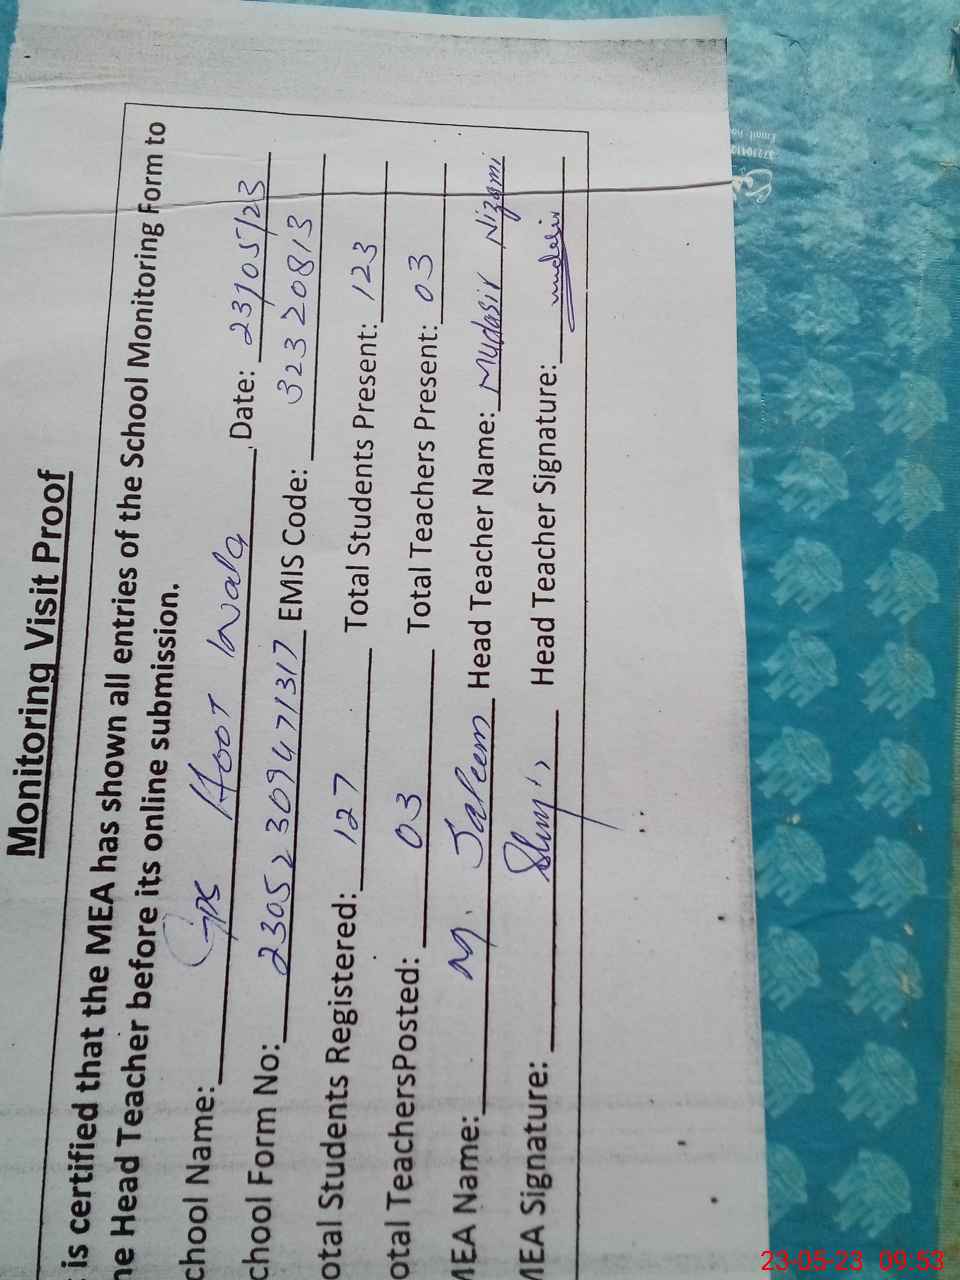 Monitoring Visit Proof
is certified that the MEA has shown all entries of the School Monitoring Form to
he Head Teacher before its online submission.
chool Name: GPS Hoot Wala, Date: 23/05/23
chool Form No: 23052309471317 EMIS Code: 32320813
otal Students Registered: 127 Total Students Present: 123
otal TeachersPosted: 03 Total Teachers Present: 03
MEA Name: M. Saleem Head Teacher Name: Mudasir Nizami
MEA Signature: Head Teacher Signature: mudasir
Email:
23-05-23 09:53